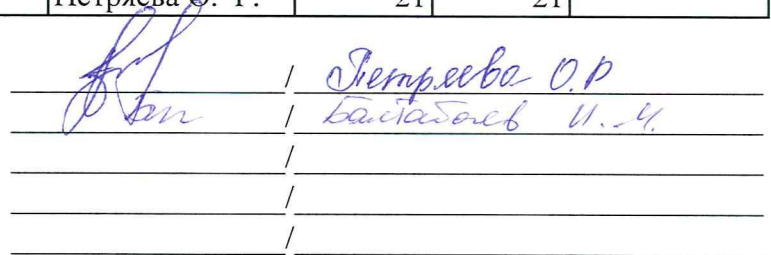 Петряева О. Р. 21 21
/ Петряева О.Р
/ Балтабаев И.М.
/
/
/